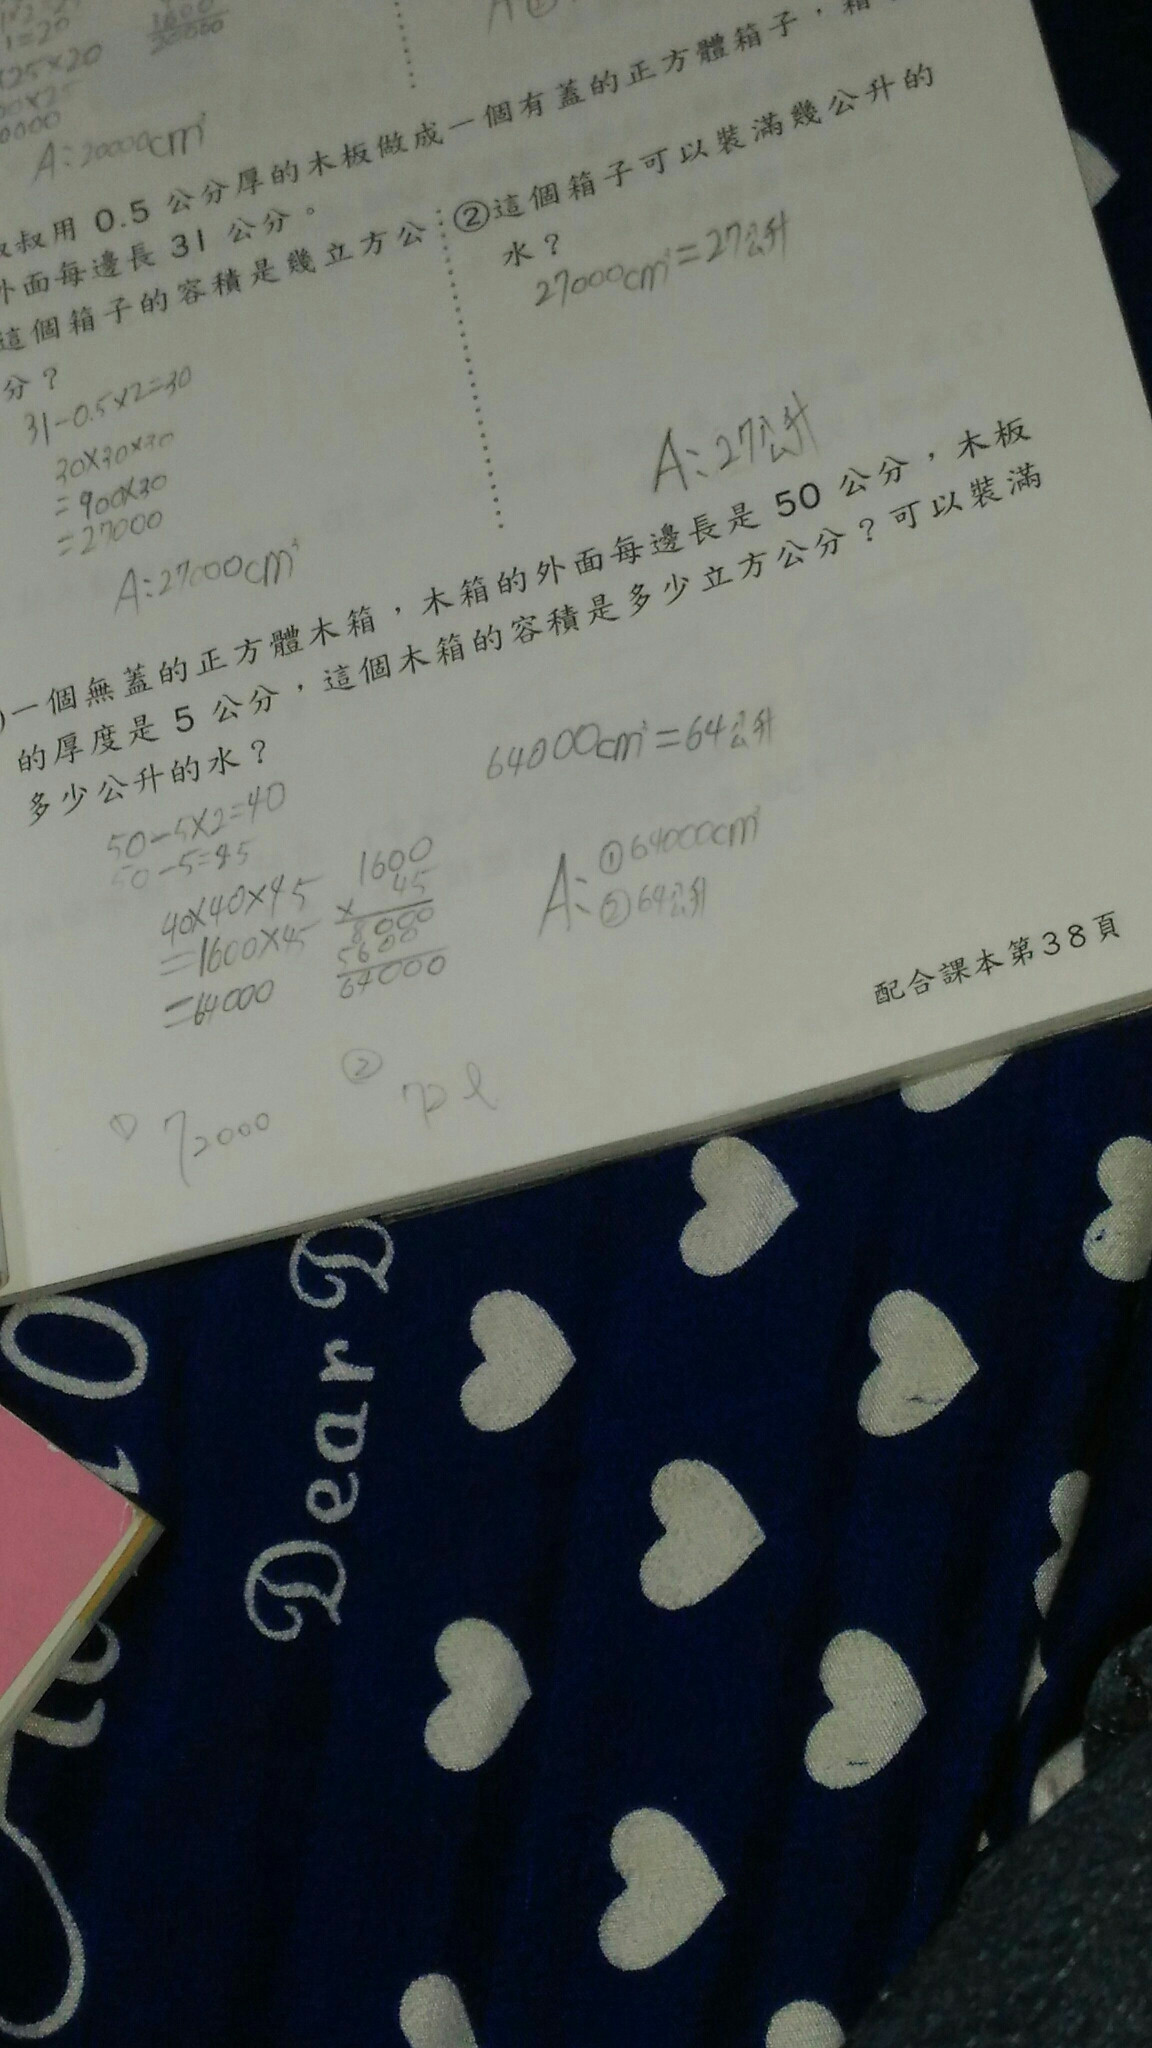 A:20000cm³
叔用 0.5 公分厚的木板做成一個有蓋的正方體箱子，
外面每邊長 31 公分。
這個箱子的容積是幾立方公
分？
31-0.5×2=30
30×30×30
=900×30
=27000
A:27000cm³
②這個箱子可以裝滿幾公升的
水？
27000cm³=27公升
A:27公升
一個無蓋的正方體木箱，木箱的外面每邊長是 50 公分，木板
的厚度是 5 公分，這個木箱的容積是多少立方公分？可以裝滿
多少公升的水？
50-5×2=40
50-5=45
40×40×45
=1600×45
=64000
1600
× 45
8000
5600
64000
64000cm³=64公升
A: ①64000cm³
②64公升
配合課本第38頁
① 72000
② 72 l
Dear D